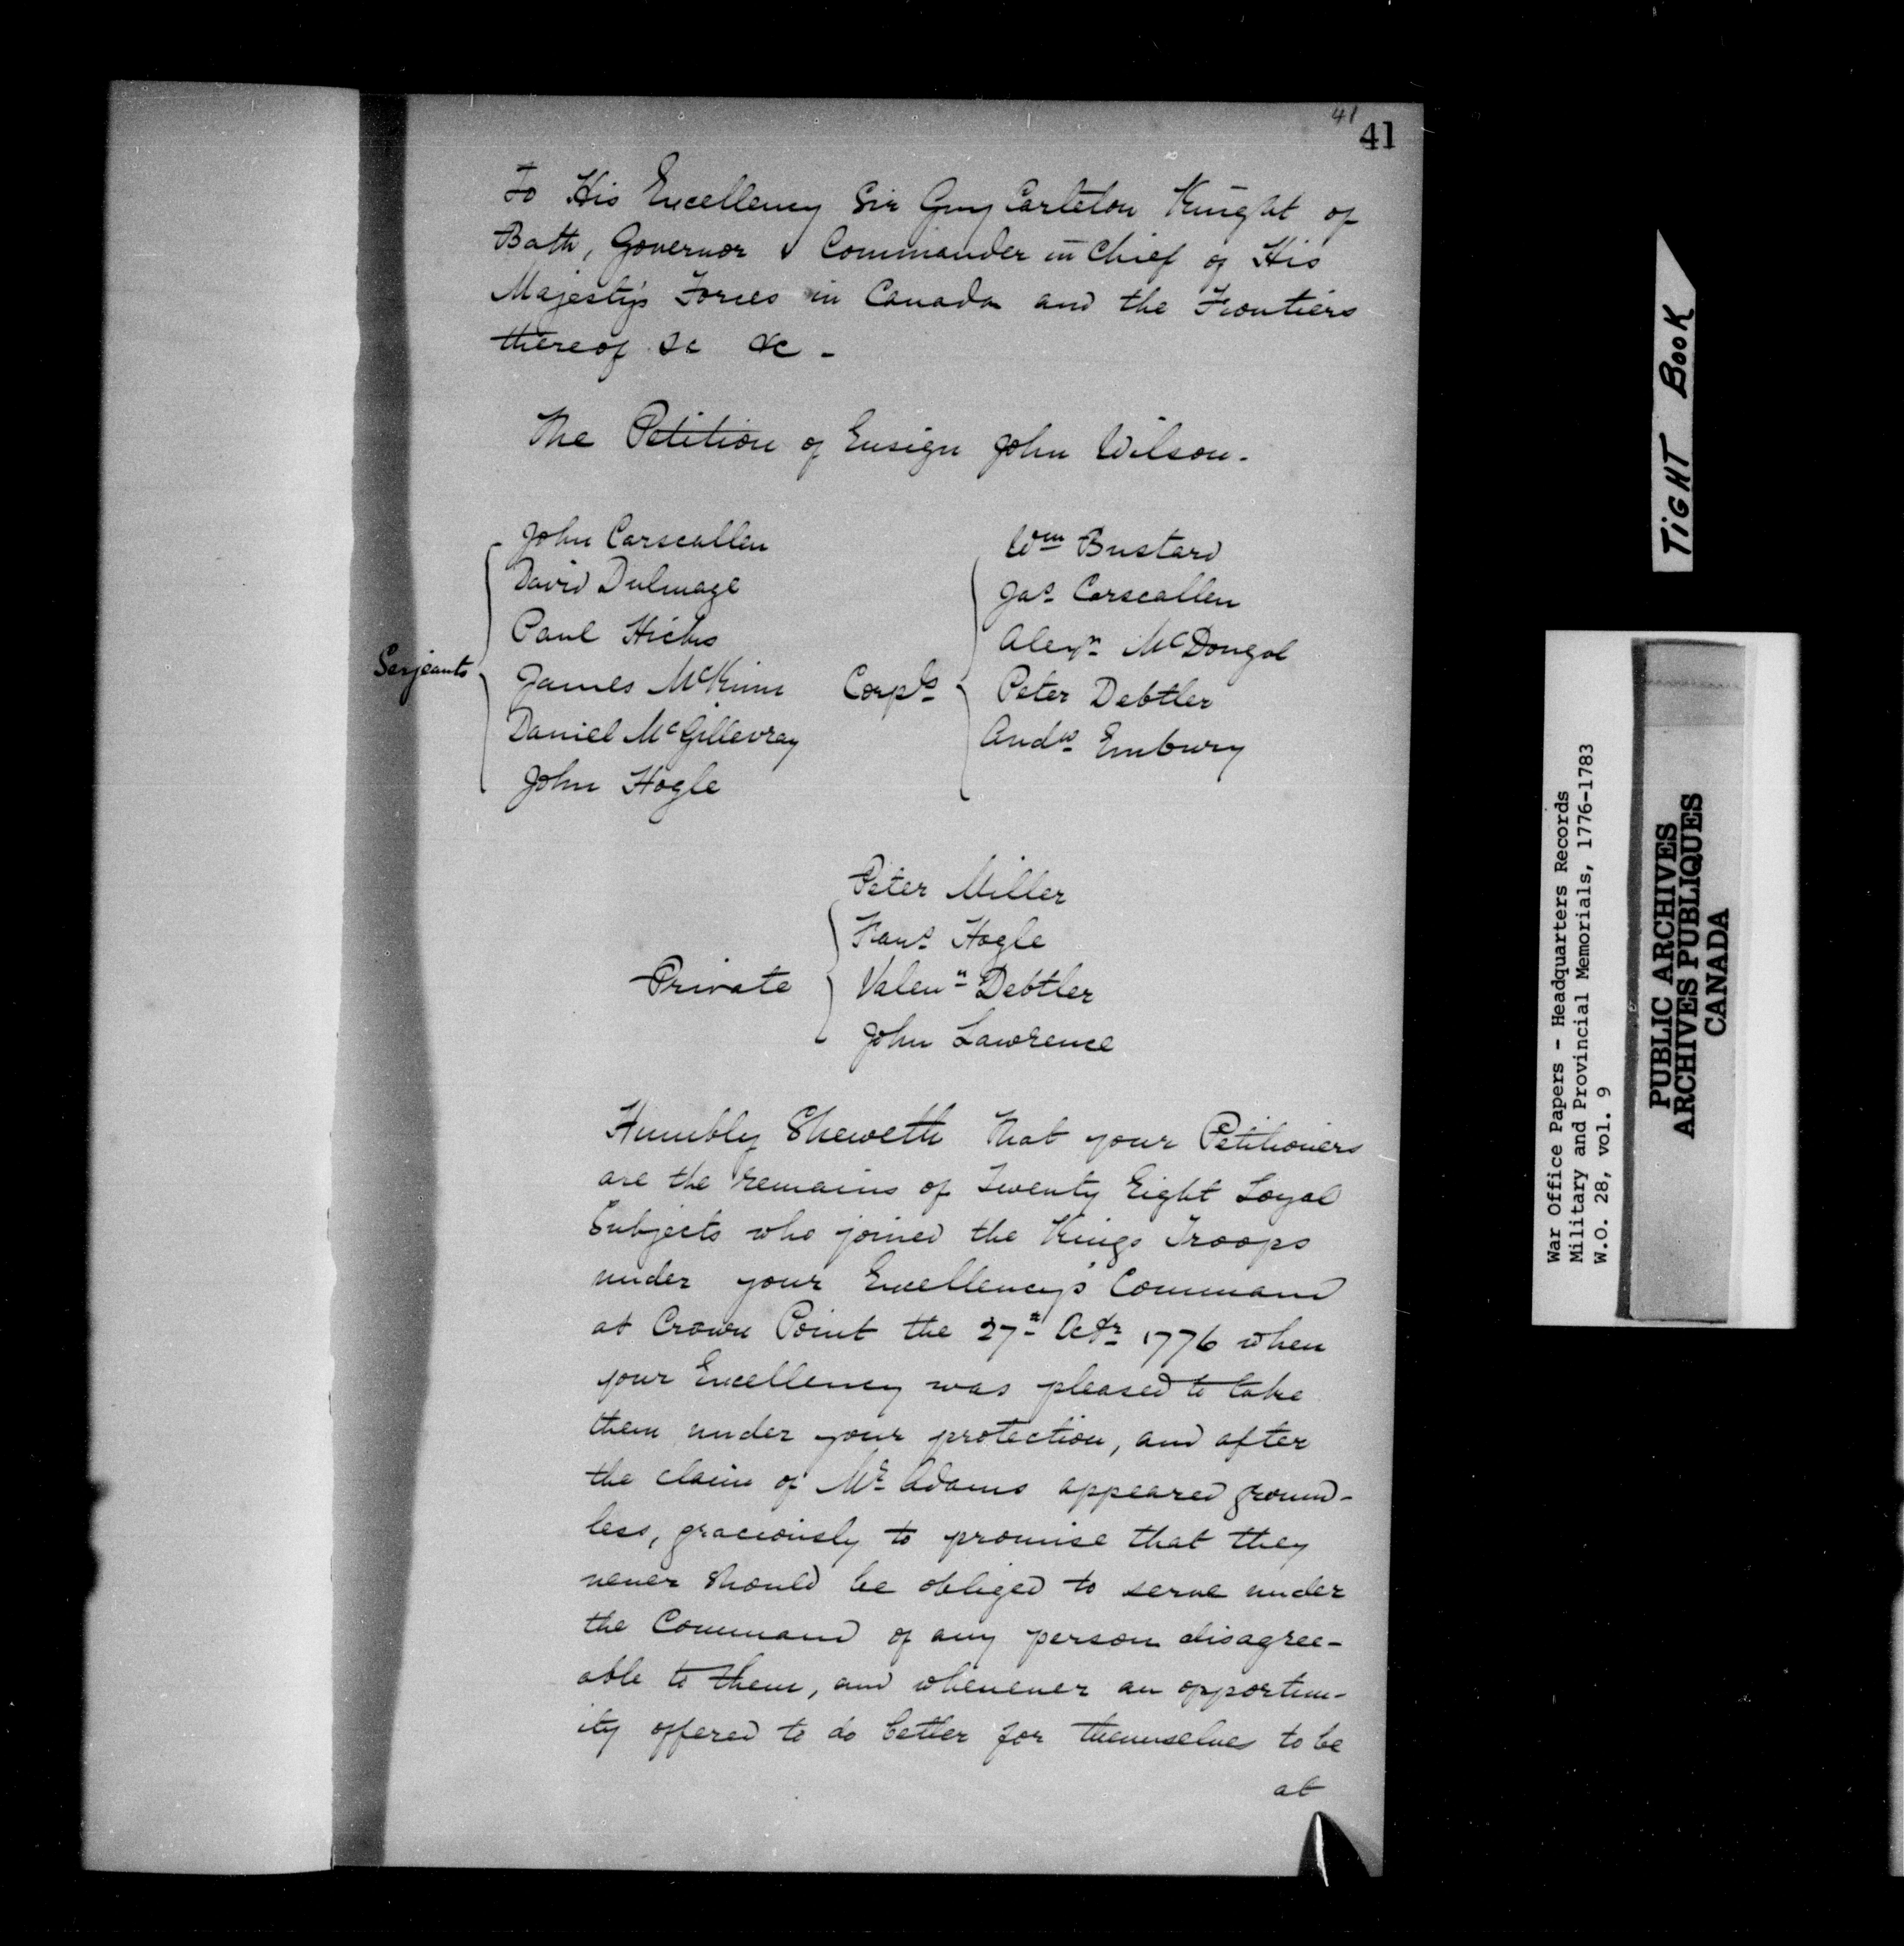 41
41
To His Excellency Sir Guy Carleton Knight of
Bath, Governor & Commander in Chief of His
Majesty's Forces in Canada and the Frontiers
thereof &c &c -
The Petition of Ensign John Wilson.
Serjeants
John Carscallen
David Dulmage
Paul Hicks
James McKim
Daniel McGillevray
John Hogle
Corpls
Wm Bustard
Jas Carscallen
Alexr McDougal
Peter Debtler
Andw Embury
Private
Peter Miller
Frans Hogle
Valenn Debtler
John Lawrence
Humbly Sheweth That your Petitioners
are the remains of Twenty Eight Loyal
Subjects who joined the Kings Troops
under your Excellency's Command
at Crown Point the 27th Octr 1776 when
your Excellency was pleased to take
them under your protection, and after
the claim of Mr Adams appeared ground-
less, graciously to promise that they
never should be obliged to serve under
the Command of any person disagree-
able to them, and whenever an opportun-
ity offered to do better for themselves to be
at
TIGHT BOOK
War Office Papers - Headquarters Records
Military and Provincial Memorials, 1776-1783
W.O. 28, vol. 9
PUBLIC ARCHIVES
ARCHIVES PUBLIQUES
CANADA